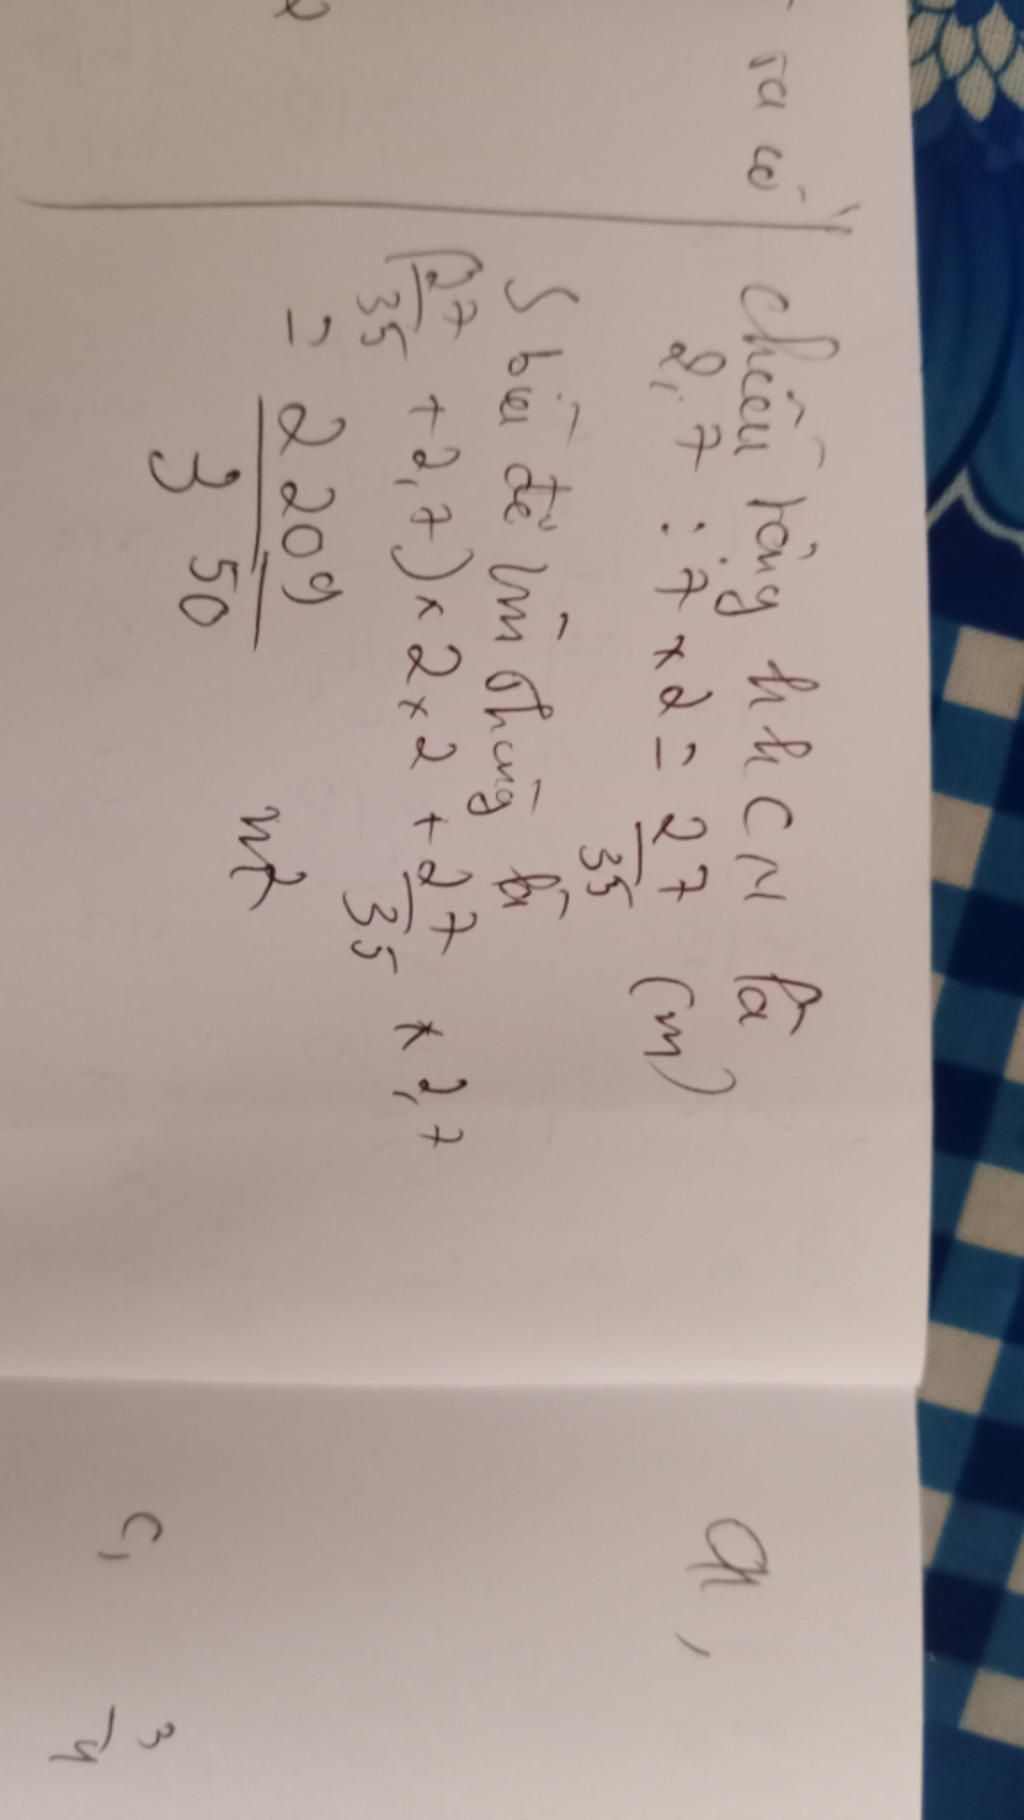 ra có
Chiều rộng hhCN là
2,7 : 7 x 2 = 27/35 (m)
S bìa để làm thùng là
(27/35 + 2,7) x 2 x 2 + 27/35 x 2,7
= 2209/350 m²
a,
c,
3/4